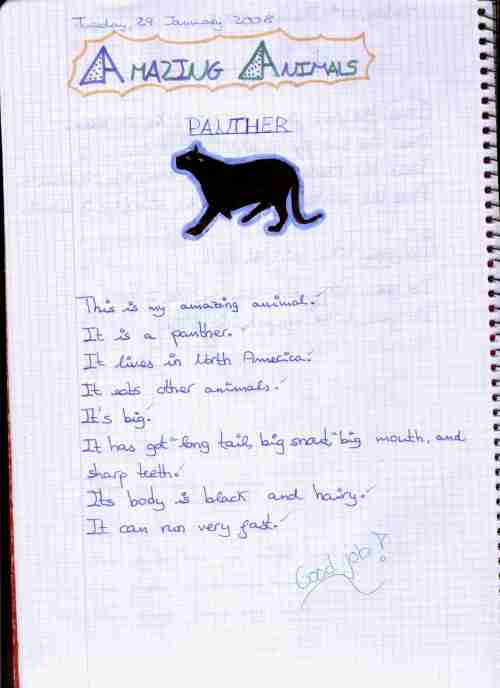 Tuesday, 29 January 2008
AMAZING ANIMALS
PANTHER
This is my amazing animal.
It is a panther.
It lives in North America.
It eats other animals.
It's big.
It has got a long tail, big snout, a big mouth, and
sharp teeth.
Its body is black and hairy.
It can run very fast.
Good job!